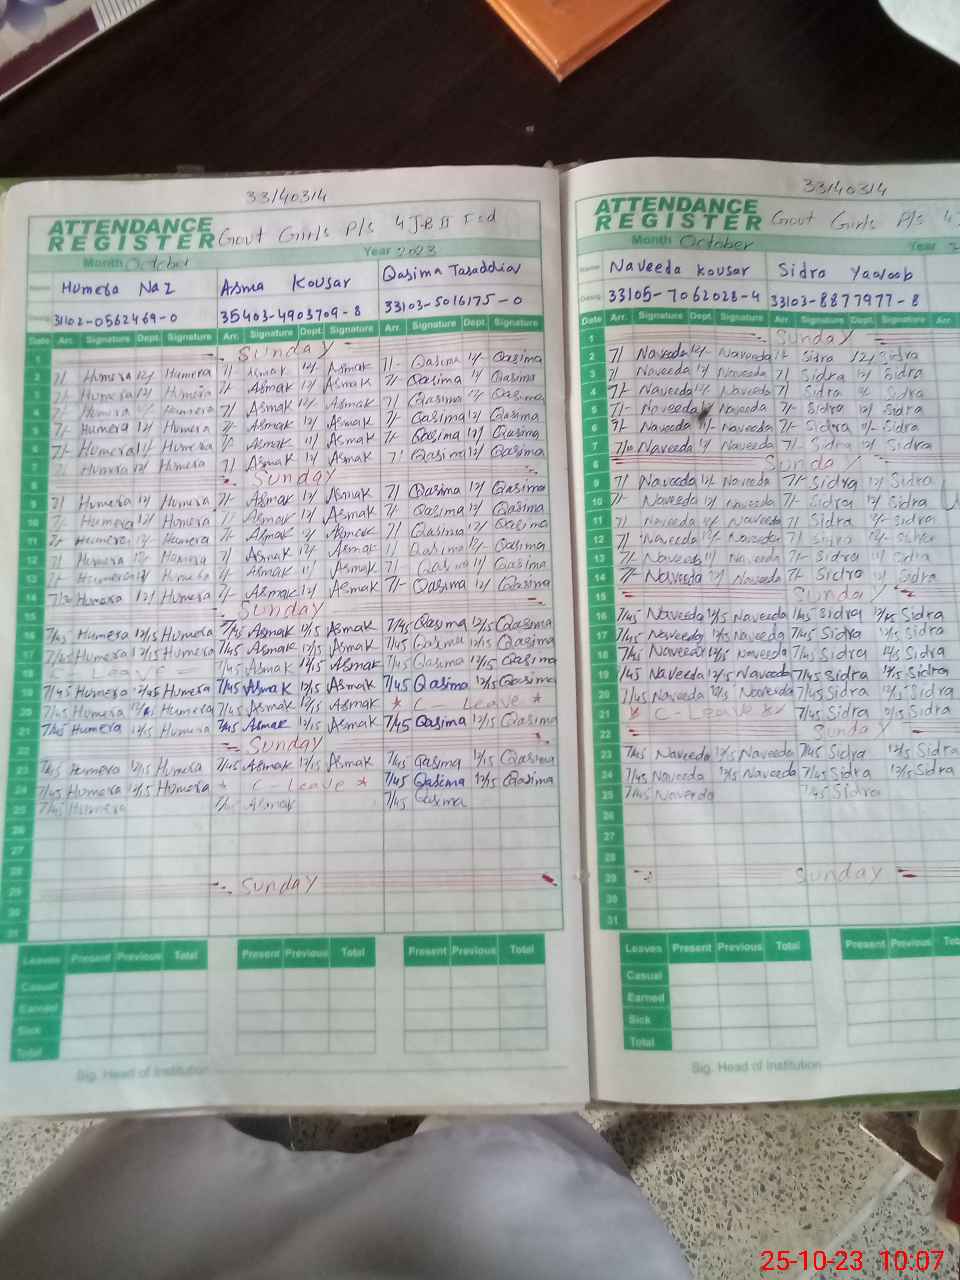 33140314
ATTENDANCE
REGISTER Govt Girls P/s 4 J-B II Fsd
Month October Year 2023
Humera Naz Asma Kousar Qasima Tasadduq
31102-0562469-0 35403-4903709-8 33103-5016175-0
Date Arr. Signature Dept. Signature Arr. Signature Dept. Signature Arr. Signature Dept. Signature
1 Sunday
2 7/ Humera 12/ Humera 7/ Asmak 12/ Asmak 7/- Qasima 12/- Qasima
3 7/- Humera 12/ Humera 7/- Asmak 12/ Asmak 7/- Qasima 12/ Qasima
4 7/- Humera 12/ Humera 7/ Asmak 12/ Asmak 7/ Qasima 12/ Qasima
5 7/- Humera 12/ Humera 7/- Asmak 12/ Asmak 7/- Qasima 12/ Qasima
6 7/- Humera 11/ Humera 7/- Asmak 11/ Asmak 7/- Qasima 11/ Qasima
7 7/ Humera 12/ Humera 7/ Asmak 12/ Asmak 7/ Qasima 12/ Qasima
8 Sunday
9 7/ Humera 12/ Humera 7/- Asmak 12/ Asmak 7/ Qasima 12/ Qasima
10 7/- Humera 12/ Humera 7/- Asmak 12/ Asmak 7/- Qasima 12/ Qasima
11 7/- Humera 12/- Humera 7/- Asmak 12/ Asmak 7/ Qasima 12/ Qasima
12 7/ Humera 12/- Humera 7/ Asmak 12/- Asmak 7/ Qasima 12/- Qasima
13 7/- Humera 12/ Humera 7/- Asmak 11/ Asmak 7/- Qasima 11/ Qasima
14 Humera 12/ Humera 7/- Asmak 12/ Asmak 7/- Qasima 12/ Qasima
15 Sunday
16 7/45 Humera 12/15 Humera 7/45 Asmak 12/15 Asmak 7/45 Qasima 12/15 Qasima
17 7/45 Humera 12/15 Humera 7/45 Asmak 12/15 Asmak 7/45 Qasima 12/15 Qasima
18 C - Leave 7/45 Asmak 12/15 Asmak 7/45 Qasima 12/15 Qasima
19 7/45 Humera 12/45 Humera 7/45 Asmak 12/15 Asmak 7/45 Qasima 12/15 Qasima
20 7/45 Humera Humera 7/45 Asmak 12/15 Asmak * C - Leave *
21 7/45 Humera 12/15 Humera 7/45 Asmak 12/15 Asmak 7/45 Qasima 12/15 Qasima
22 Sunday
23 7/45 Humera 12/15 Humera 7/45 Asmak 12/15 Asmak 7/45 Qasima 12/15 Qasima
24 7/45 Humera 12/15 Humera * C Leave * 7/45 Qasima 12/15 Qasima
25 7/45 Humera Asmak 7/45 Qasima
26
27
28
29 Sunday
30
31
Leaves Present Previous Total Present Previous Total Present Previous Total
Casual
Earned
Sick
Total
Sig. Head of Institution
33140314
ATTENDANCE
REGISTER Govt Girls P/s 4
Month October Year 2
Name Naveeda Kousar Sidra Yaqoob
33105-7062028-4 33103-8877977-8
Date Arr. Signature Dept. Signature Arr. Signature Dept. Signature Arr
1 Sunday
2 7/ Naveeda 12/- Naveeda 7/- Sidra 12/ Sidra
3 7/ Naveeda 12/ Naveeda 7/ Sidra 12/ Sidra
4 7/- Naveeda 12/ Naveeda 7/ Sidra 12/ Sidra
5 7/- Naveeda Naveeda 7/- Sidra 12/ Sidra
6 7/- Naveeda 11/- Naveeda 7/- Sidra 11/- Sidra
7 Naveeda 12/ Naveeda 7/- Sidra 12/ Sidra
8 Sunday
9 7/ Naveeda 12/ Naveeda 7/- Sidra 12/ Sidra
10 7/- Naveeda 12/ Naveeda 7/- Sidra 12/ Sidra
11 7/ Naveeda 12/ Naveeda 7/ Sidra 12/- Sidra
12 7/ Naveeda 12/- Naveeda 7/- Sidra 12/- Sidra
13 7/- Naveeda 11/ Naveeda 7/- Sidra 11/ Sidra
14 7/- Naveeda 12/ Naveeda 7/- Sidra 12/ Sidra
15 Sunday
16 7/45 Naveeda 12/15 Naveeda 7/45 Sidra 12/15 Sidra
17 7/45 Naveeda 12/15 Naveeda 7/45 Sidra 12/15 Sidra
18 7/45 Naveeda 12/15 Naveeda 7/45 Sidra 12/15 Sidra
19 7/45 Naveeda 12/15 Naveeda 7/45 Sidra 12/15 Sidra
20 7/45 Naveeda 12/15 Naveeda 7/45 Sidra 12/15 Sidra
21 * C - Leave 7/45 Sidra 12/15 Sidra
22 Sunday
23 7/45 Naveeda 12/15 Naveeda 7/45 Sidra 12/15 Sidra
24 7/45 Naveeda 12/15 Naveeda 7/45 Sidra 12/15 Sidra
25 7/45 Naveeda 7/45 Sidra
26
27
28
29 Sunday
30
31
Leaves Present Previous Total Present Previous
Casual
Earned
Sick
Total
Sig. Head of Institution
25-10-23 10:07